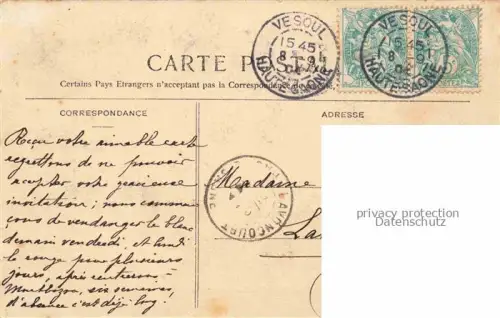 VESOUL
15 45
8 -9
04
HAUTE-SAONE
VESOUL
15 45
8 -9
04
HAUTE-SAONE
CARTE POSTALE
Certains Pays Etrangers n'acceptent pas la Correspondance de
CORRESPONDANCE
ADRESSE
Reçu votre aimable carte
regrettons de ne pouvoir
accepter votre gracieuse
invitation ; nous commen
çons de vendanger le blanc
demain vendredi. et lundi
le rouge pour plusieurs
jours, après rentrerons à
Montbozon, six semaines,
d'absence c'est déjà long.
Madame
LAVONCOURT
La
privacy protection
Datenschutz